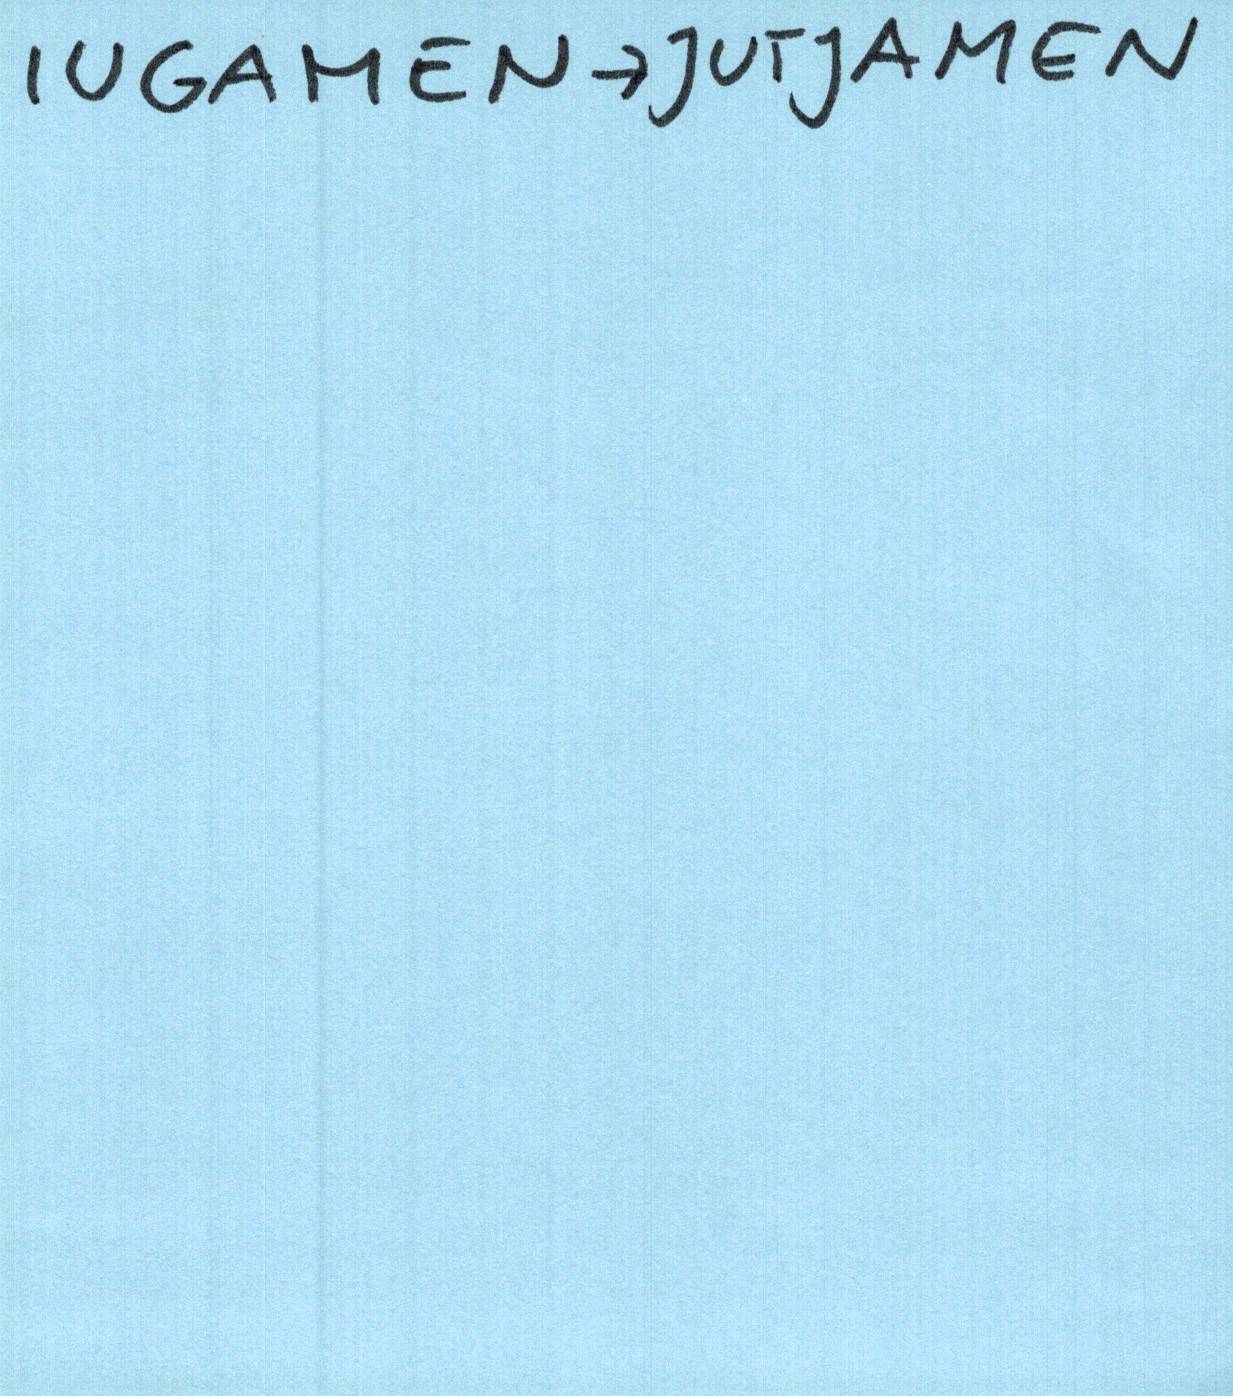 IUGAMEN → JUTJAMEN